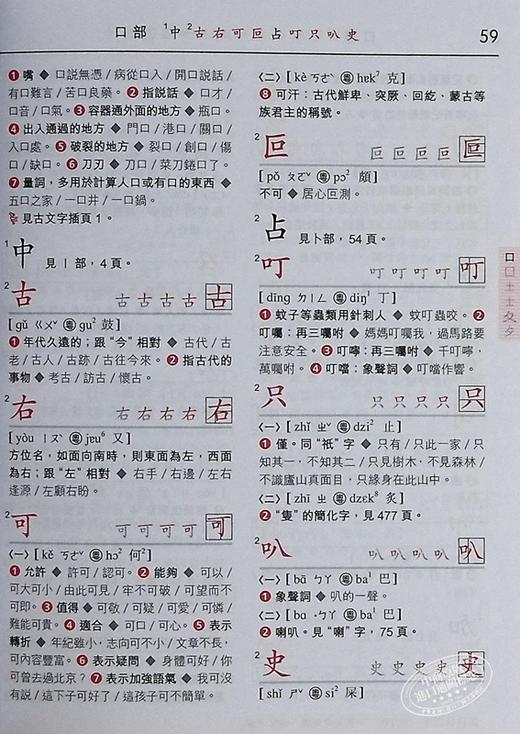 口部 ¹中²古右可叵占叮只叭史 59
❶嘴◆口說無憑/病從口入/開口說話/
有口難言/苦口良藥。❷指說話◆口才/
口音/口氣。❸容器通外面的地方◆瓶口。
❹出入通過的地方◆門口/港口/關口/
入口處。❺破裂的地方◆裂口/創口/傷
口/缺口。❻刀刃◆刀口/菜刀錈口了。
❼量詞,多用於計算人口或有口的東西◆
五口之家/一口井/一口鍋。
見古文字插頁1。
¹中 見丨部,4頁。
²古 古古古古古
[gǔ ㄍㄨˇ 粵gu² 鼓]
❶年代久遠的;跟“今”相對◆古代/古
老/古人/古跡/古往今來。❷指古代的
事物◆考古/訪古/懷古。
²右 右右右右右
[yòu ㄧㄡˋ 粵jɐu⁶ 又]
方位名,如面向南時,則東面為左,西面
為右;跟“左”相對◆右手/右邊/左右
逢源/左顧右盼。
²可 可可可可可
〈一〉[kě ㄎㄜˇ 粵hɔ² 何²]
❶允許◆許可/認可。❷能夠◆可以/
可大可小/由此可見/牢不可破/可望而不
可即。❸值得◆可敬/可疑/可愛/可憐/
難能可貴。❹適合◆可口/可心。❺表示
轉折◆年紀雖小,志向可不小/文章不長,
可內容豐富。❻表示疑問◆身體可好/你
可曾去過北京?❼表示加強語氣◆我可沒
有說/這下子可好了/這孩子可不簡單。
〈二〉[kè ㄎㄜˋ 粵hɐk⁷ 克]
❽可汗:古代鮮卑、突厥、回紇、蒙古等
族君主的稱號。
²叵 叵叵叵叵叵
[pǒ ㄆㄛˇ 粵pɔ² 頗]
不可◆居心叵測。
²占 見卜部,54頁。
²叮 叮叮叮叮叮
[dīng ㄉㄧㄥ 粵diŋ¹ 丁]
❶蚊子等蟲類用針刺人◆蚊叮蟲咬。❷
叮囑:再三囑咐◆媽媽叮囑我,過馬路要
注意安全。❸叮嚀:再三囑咐◆千叮嚀,
萬囑咐。❹叮噹:象聲詞◆叮噹作響。
²只 只只只只只
〈一〉[zhǐ ㄓˇ 粵dzi² 止]
❶僅。同“衹”字◆只有/只此一家/只
知其一,不知其二/只見樹木,不見森林/
不識廬山真面目,只緣身在此山中。
〈二〉[zhī ㄓ 粵dzɛk⁸ 炙]
❷“隻”的簡化字,見477頁。
²叭 叭叭叭叭叭
〈一〉[bā ㄅㄚ 粵ba¹ 巴]
❶象聲詞◆叭的一聲。
〈二〉[ba ·ㄅㄚ 粵ba¹ 巴]
❷喇叭。見“喇”字,75頁。
²史 史史史史史
[shǐ ㄕˇ 粵si² 屎]
口囗土士夂夕